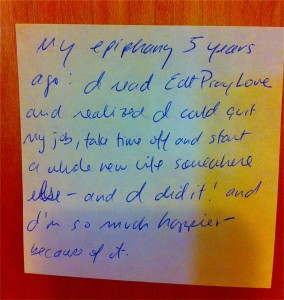 My epiphany 5 years
ago: I read EatPrayLove
and realized I could quit
my job, take time off and start
a whole new life somewhere
else - and I did it! and
I'm so much happier -
because of it.